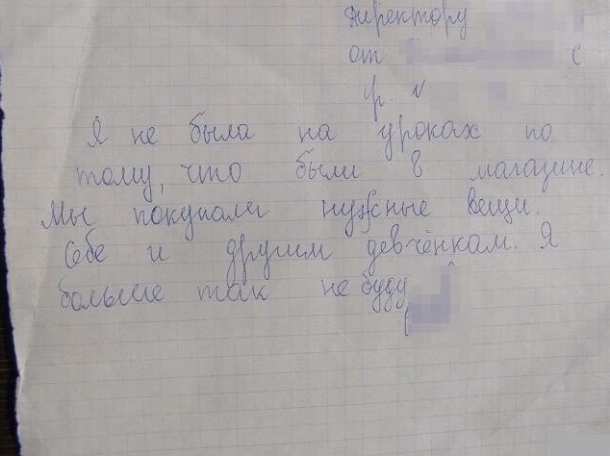 директору
от
гр. N
Я не была на уроках по
тому, что были в магазине.
Мы покупали нужные вещи.
Себе и другим девчёнкам. Я
больше так не буду